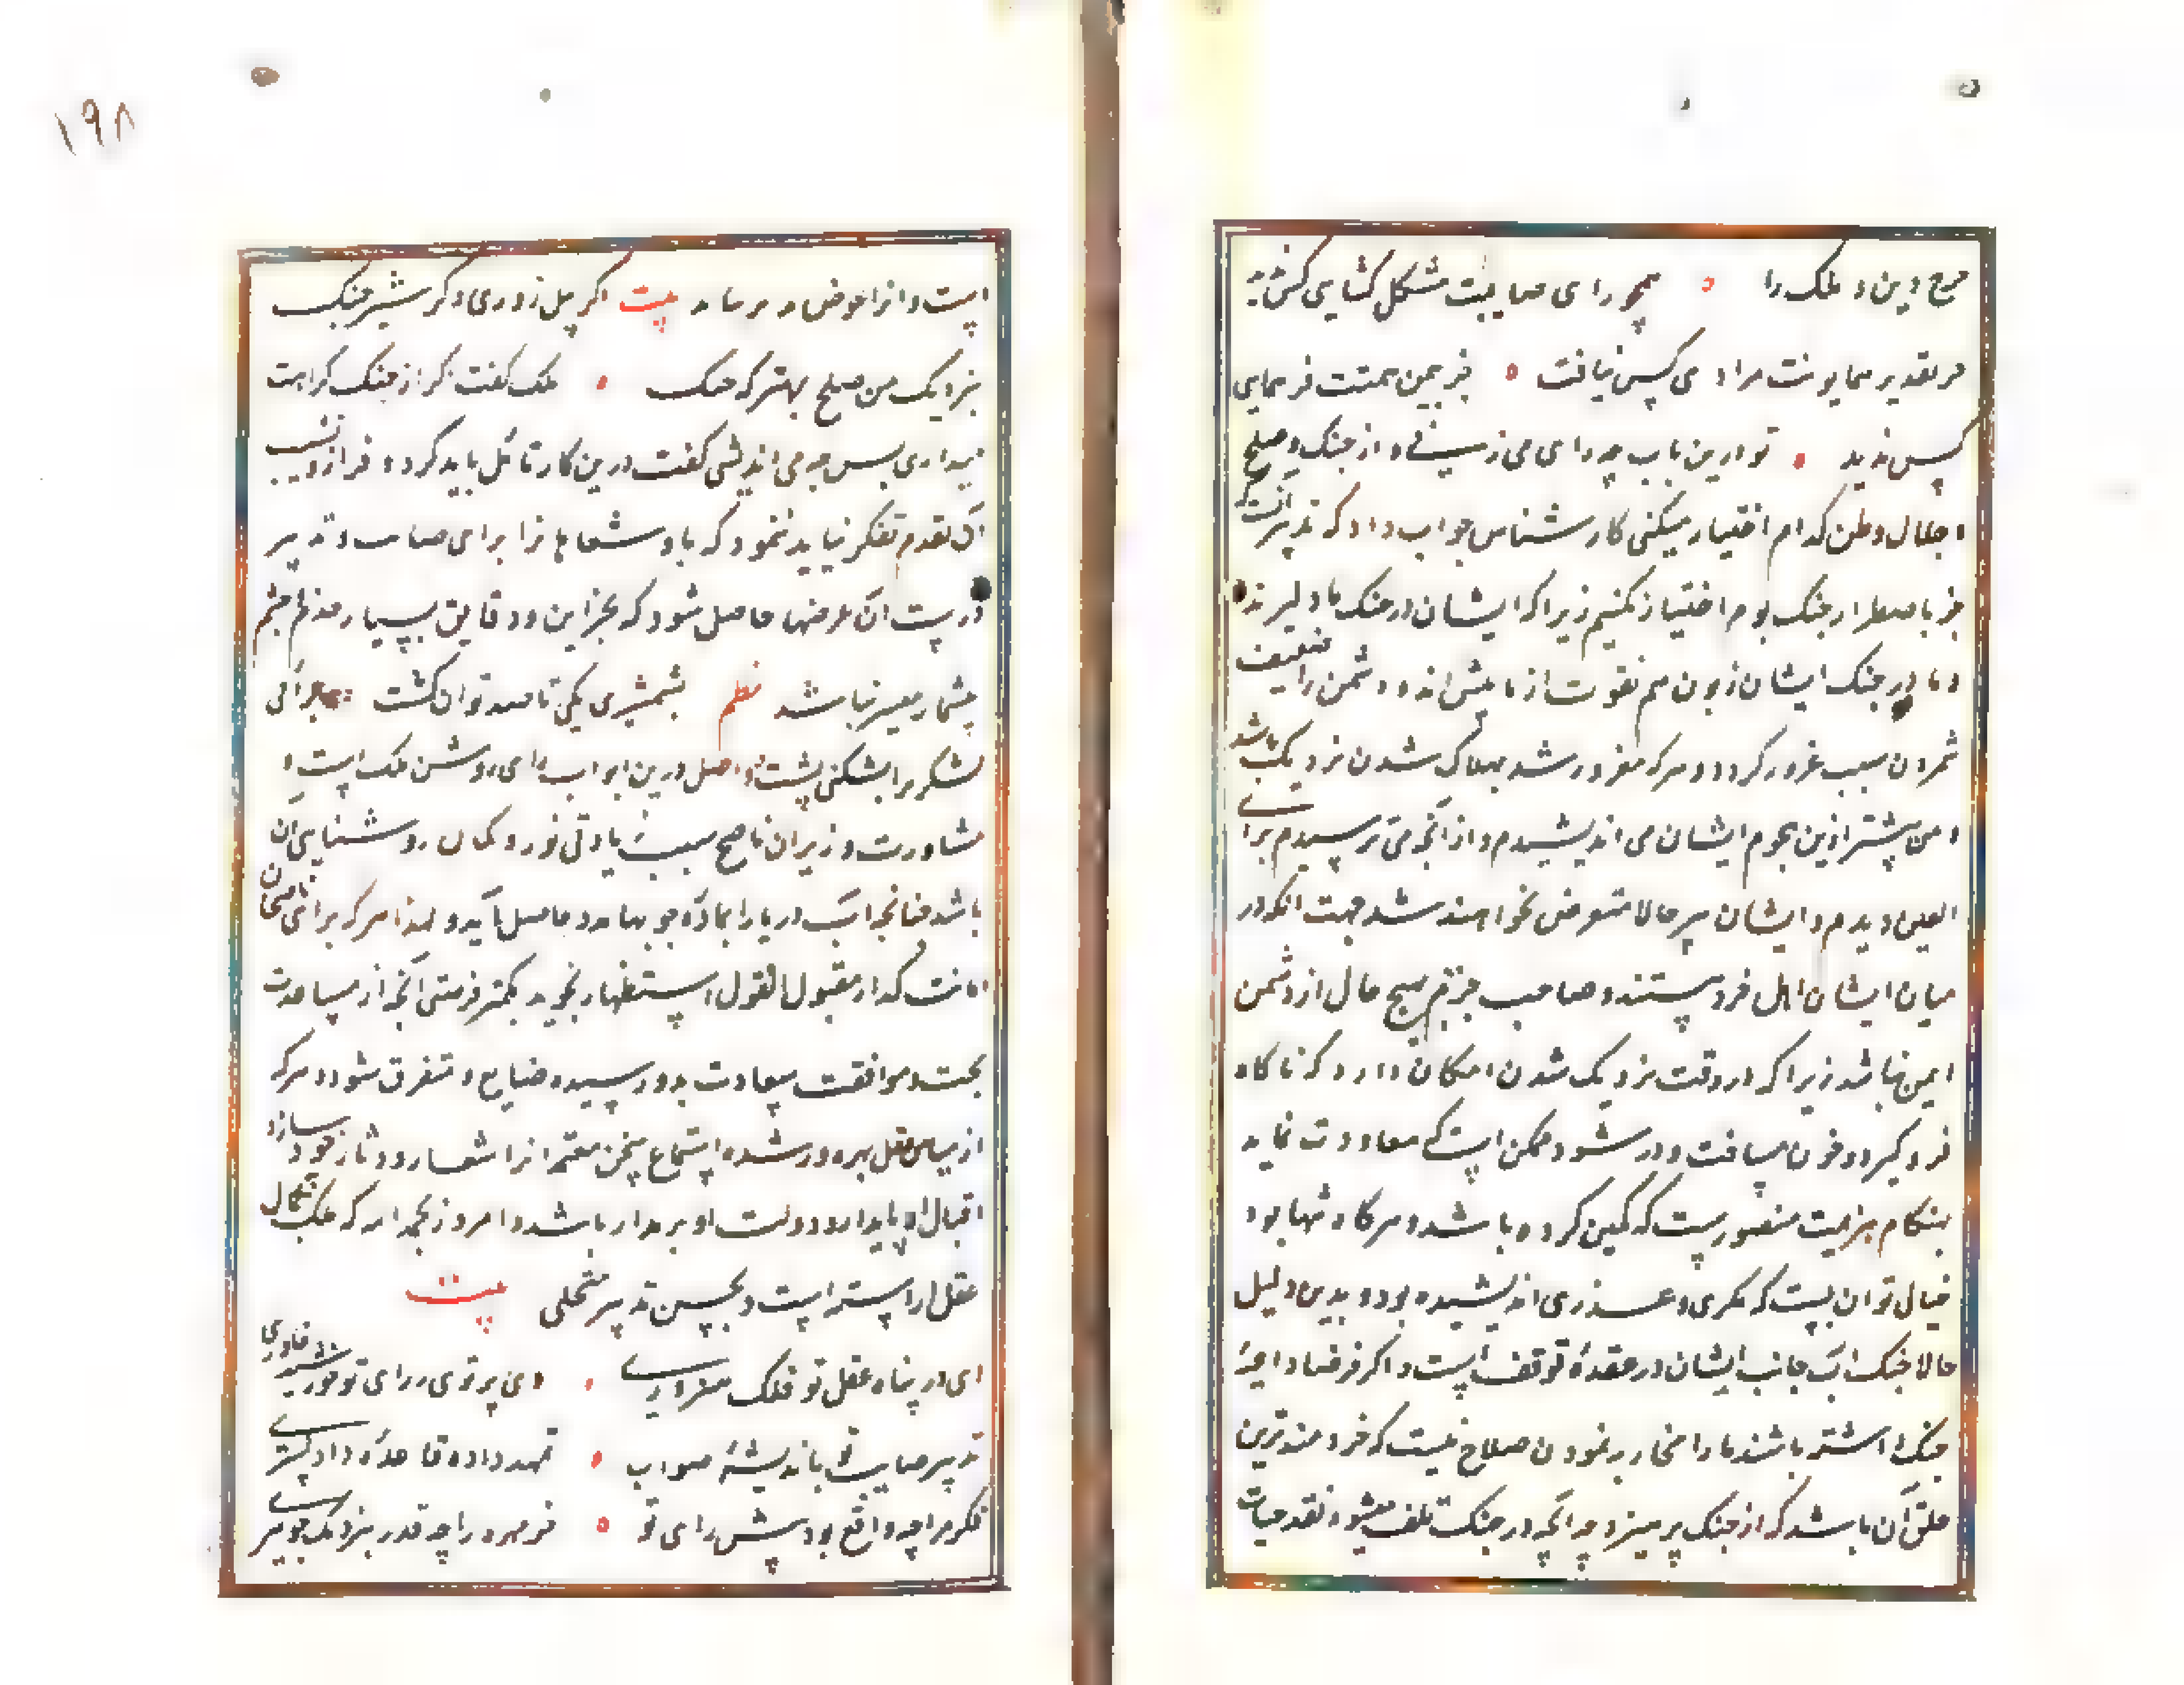 هیچ دین و ملک را ه همچو رای صایبت مشکل کشایی کس ندید
در تقدیر همایونت مرادی کس نیافت ه جز جبین همتت فر همایی
کس ندید ه تو درین باب چه رای می زنی و از جنک و صلح
و جلای وطن کدام اختیار میکنی کارشناس جواب داد که تدبیر آنست
جز باضطرار جنک بوم اختیار نکنیم زیرا که ایشان در جنک ما دلیرند
و ما در جنک ایشان زبون هم بقوت از ما بیش اند و دشمن را ضعیف
شمردن سبب غرور کردد و هر که مغرور شد بهلاک شدن نزدیک باشد
و من پیشتر ازین هجوم ایشان می اندیشیدم و از آنچه می ترسیدم برای
العین دیدم و ایشان هر حالا متعرض نخواهند شد جهت آنکه در
میان ایشان اهل خرد هستند و صاحب حزم هیچ حال از دشمن
ایمن نباشد زیرا که در وقت نزدیک شدن امکان دارد که ناکاه
فرو کیرد و چون مسافت دور شود ممکن است که معاودت نماید
هنکام هزیمت متصورست که کمین کرده باشد و هر کاه تنها بود
خیال توان بست که مکری و عذری اندیشیده بود و بدین دلیل
حالا جنک از جانب ایشان در عقدهٔ توقف است و اکر فرضا داعیهٔ
جنک داشته باشند ما را محاربه نمودن صلاح نیست که خردمندترین
خلق آن باشد که از جنک پرهیزد چه آنچه در جنک تلف میشود نقد حیات
۱۹۸
است و آنرا عوض بیت اکر پیل زوری و کر شیر جنک
بنزدیک من صلح بهتر که جنک ه ملک کفت اکر از جنک کراهت
میداری پس چه می اندیشی کفت درین کار تأمل باید کرد و فراز و نشیب
آن بقدم تفکر بباید پیمود که پادشاهانرا برای صایب و تدبیر
درست آن غرضها حاصل شود که بجز این و دقایق بسیار
بیشمار میسر نباشد نظم بشمشیری یکی تا صد توان کشت برائی
لشکر را بشکنی پشت و اصل درین ابواب رای روشن ملک است و
مشاورت وزیران ناصح سبب زیادتی نور و کمال روشنایی آن
باشد چنانچه آب دریا را بمادهٔ جویها مدد حاصل آید و لهذا هر که برای ناصحان
امانت کذار مقبول القول استظهار نجوید بکمتر فرصتی آنچه از مساعدت
بخت و موافقت سعادت بدو رسیده ضایع و متفرق شود و هر که
از میامن عقل بهره ور شده استماع سخن معتمدانرا شعار و دثار خود سازد
اقبال او پایدار و دولت او برقرار باشد و امروز بحمدالله که ملک بکمال
عقل آراسته است و بحسن تدبیر متحلی بیت
ای در پناه عقل تو فلک سروری ه وی پرتوی ز رای تو خورشید خاوری
تدبیر صایب تو باندیشهٔ صواب ه تمهید داده قاعدهٔ دادکستری
فکر مرا چه واقع بود پیش رای تو ه خرمهره را چه قدر بنزدیک جوهری